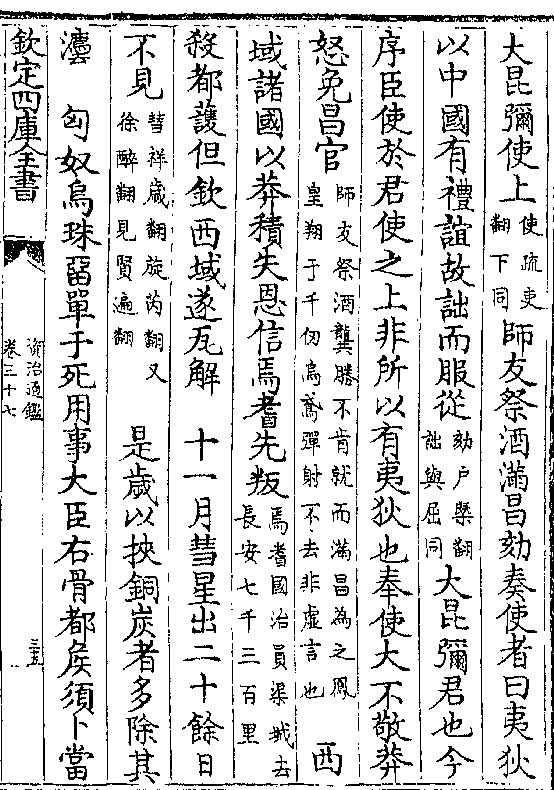 大昆彌使上使疏吏翻下同師友祭酒滿昌劾奏使者曰夷狄
以中國有禮誼故詘而服從劾户槩翻詘與屈同大昆彌君也今
序臣使於君使之上非所以有夷狄也奉使大不敬莽
怒免昌官師友祭酒龔勝不肯就而滿昌為之鳳皇翔于千仞烏鳶彈射不去非虛言也西
域諸國以莽積失恩信焉耆先叛焉耆國治員渠城去長安七千三百里
殺都護但欽西域遂瓦解 十一月彗星出二十餘日
不見彗祥歲翻旋芮翻又徐醉翻見賢遍翻 是歲以挾銅炭者多除其
灋 匈奴烏珠畱單于死用事大臣右骨都侯須卜當
欽定四庫全書
資治通鑑
卷三十七
三五